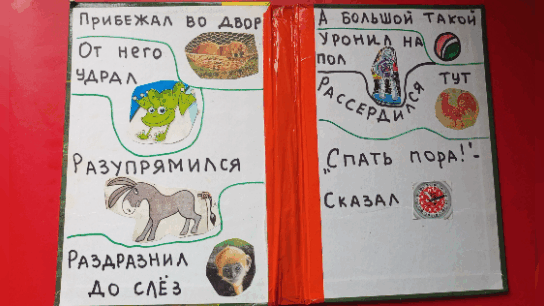 Прибежал во двор
От него
удрал
Разупрямился
Раздразнил
до слёз
А большой такой
уронил на
пол
Тут
Рассердился
„Спать пора!"-
Сказал